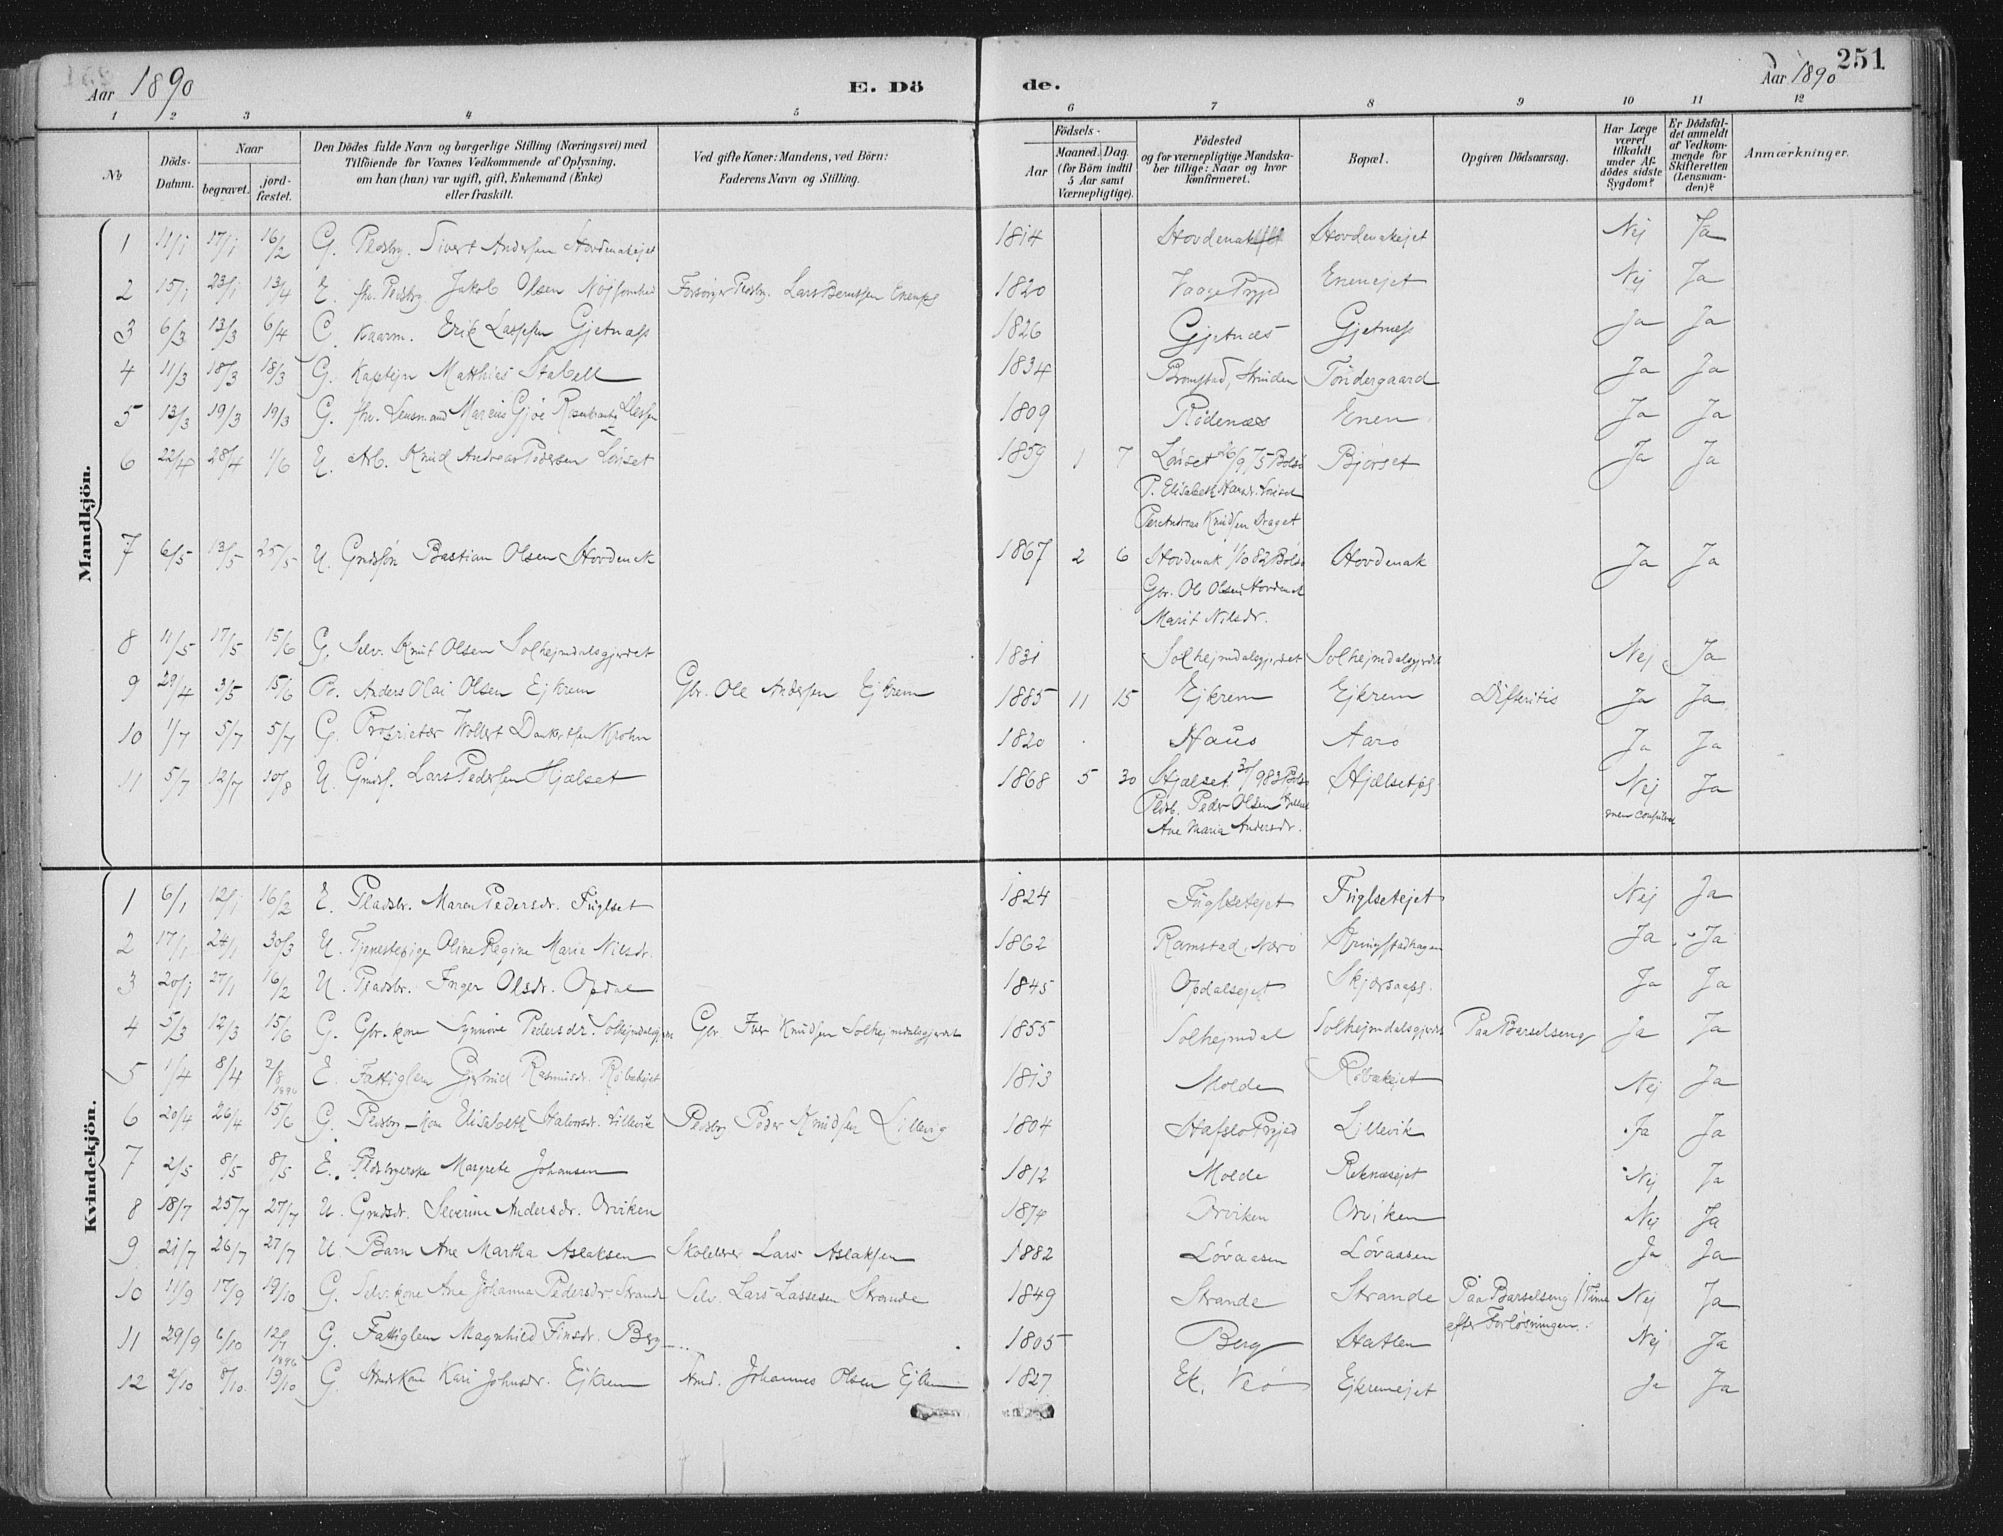 251
Aar 1890
E. Dö
de.
Aar 1890
1 2 3 4 5 6 7 8 9 10 11 12
No
Döds-
Datum.
Naar
begravet.
jord-
fæstet.
Den Dödes fulde Navn og borgerlige Stilling (Næringsvei) med
Tilföiende for Voxnes Vedkommende af Oplysning,
om han (hun) var ugift, gift, Enkemand (Enke)
eller fraskilt.
Ved gifte Koner: Mandens, ved Börn:
Faderens Navn og Stilling.
Födsels-
Aar
Maaned. Dag.
(for Börn indtil
5 Aar samt
Værnepligtige).
Födested
og for værnepligtige Mandska-
ber tillige: Naar og hvor
konfirmeret.
Bopæl.
Opgiven Dödsaarsag.
Har Læge
været
tilkaldt
under Af-
dödes sidste
Sygdom?
Er Dödsfal-
det anmeldt
af Vedkom-
mende for
Skifteretten
(Lensman-
den)?
Anmærkninger.
Mandkjön.
1 11/1 17/1 16/2 G. Pladsby. Sivert Andersen Hovdenakejet 1814 Hovdenak Hovdenakejet Nej Ja
2 15/1 23/1 13/4 E. fhv. Pladsby. Jakob Olsen Nøjsomhed Forsørger Pladsby. Lars Berntsen Enenejet 1820 Vaage Prgjd Enenejet Nej Ja
3 6/3 13/3 6/4 G. Kaarm. Erik Lassen Gjetnæss 1826 Gjetnæs Gjetnæss Ja Ja
4 11/3 18/3 18/3 G. Kaptejn Matthias Stabell 1834 Bromstad, Strinden Töndergaard Ja Ja
5 13/3 19/3 19/3 G. fhv. Lensmand Marcus Gjöe Rosenkrantz 1809 Rödenæs Enen Ja Ja
6 22/4 28/4 1/6 U. Arb. Knud Andreas Pedersen Lönset 1859 1 7 Lönset 26/9 75 Bolsö Bjorset Ja Ja
P. Elisabeth Hansd. Lönset
Peter Andreas Knudsen Draget
7 6/5 13/5 25/5 U. Grndsön Bastian Olsen Hovdenak 1867 2 6 Hovdenak 1/10 82 Bolsö Hovdenak Ja Ja
Gbr. Ol Olsen Hovdenak
Marit Nilsdr.
8 11/5 17/5 15/6 G. Selv. Knut Olsen Solhejmdalsgjerdet 1831 Solhejmdalsgjerdet Solhejmdalsgjerdet Nej Ja
9 29/4 3/5 15/6 B. Anders Olai Olsen Ejkrem Gbr. Ole Andersen Ejkrem 1885 11 15 Ejkrem Ejkrem Difteritis Ja Ja
10 1/7 5/7 5/7 G. Proprietær Wollert Dankertsen Krohn 1820 Haus Aarö Ja Ja
11 5/7 12/7 10/8 U. Grndsf. Lars Pedersen Hjælset 1868 5 30 Hjælset 30/9 83 Bolsö Hjælset Nej Ja
Pladsb. Peder Olsen Hjælset men consuleret
Ane Maria Andersdr.
Kvindekjön.
1 6/1 12/1 16/2 E. Pladsbr. Maren Pedersdr. Fuglset 1824 Fuglsetejet Fuglsetejet Nej Ja
2 17/1 24/1 30/3 U. Tjenestepige Oline Regine Maria Nilsdr. 1862 Ramstad, Nærö Kringstadhagen Ja Ja
3 20/1 27/1 16/2 U. Pladsbr. Inger Olsdr. Opdal 1845 Opdalsejet Ja Ja
4 5/3 12/3 15/6 G. Gbr. kone Synnöve Pedersdr. Solhejmdalsgjerdet Gbr. Iver Knudsen Solhejmdalsgjerdet 1855 Solhejmdal Solhejmdalsgjerdet Paa Barselseng Ja Ja
5 1/4 8/4 2/8 1896 E. Fattiglem Gjertrud Rasmusdr. Röbækejet 1813 Molde Röbækejet Nej Ja
6 20/4 26/4 15/6 G. Pladsby-kone Elisabeth Halvorsdr. Lillevik Pladsby Peder Knudsen Lillevig 1804 Hafslo Prgjd Lillevik Ja Ja
7 2/5 8/5 8/5 E. Pladsbyerske Margrete Johansen 1812 Molde Reknæsejet Nej Ja
8 18/7 25/7 27/7 U. Grndsdr. Severine Andersdr. Orviken 1874 Orviken Orviken Nej Ja
9 21/7 26/7 27/7 U. Barn Ane Martha Aslaksen Skolelærer Lars Aslaksen 1882 Lövaasen Lövaasen Ja Ja
10 11/9 17/9 19/10 G. Selv. kone Ane Johanna Pedersdr. Strande Selv. Lars Lassesen Strande 1849 Strande Strande Paa Barselseng 1 Time Nej Ja
efter Forlösningen.
11 29/9 6/10 12/7 1896 G. Fattiglem Magnhild Finsdr. Berg 1805 Berg Hatlen Nej Ja
12 2/10 8/10 19/10 G. Kari Johnsdr. Ejkrem Johannes Olsen Ejkrem 1827 Ek, Veö Ejkremejet Ja Ja